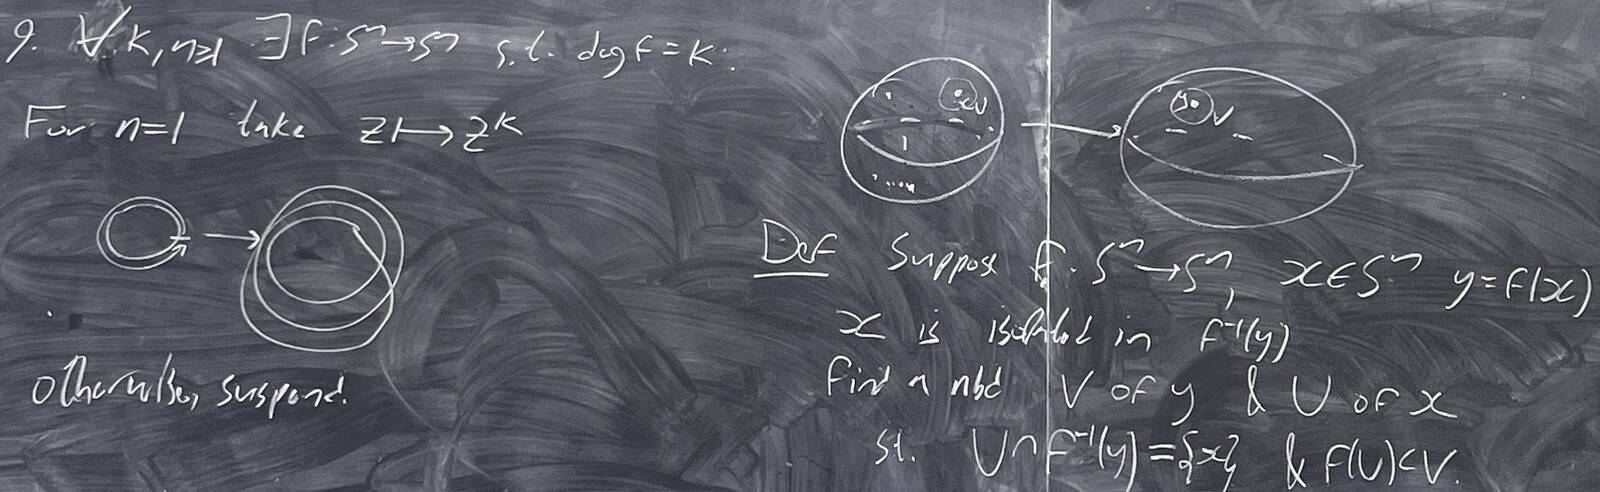 9. ∀ k, n≥1 ∃ f: Sⁿ→Sⁿ s.t. deg f = k.
For n=1 take z ↦ zᵏ
otherwise, suspend.
x U
y V
Def Suppose f: Sⁿ→Sⁿ, x∈Sⁿ y=f(x)
x is isolated in f⁻¹(y)
find a nbd V of y & U of x
st. U∩f⁻¹(y)={x} & f(U)⊂V.